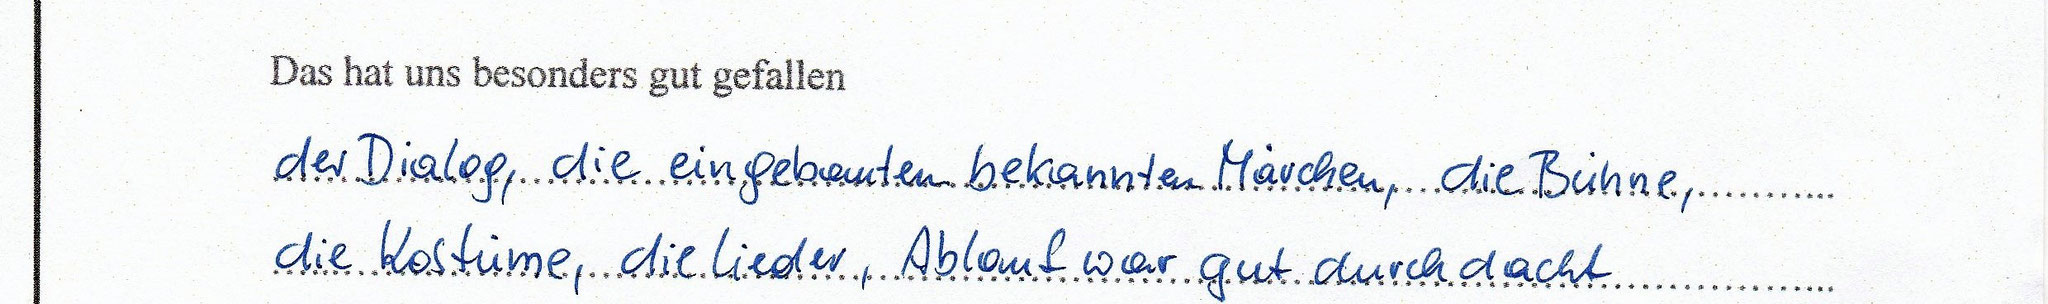 Das hat uns besonders gut gefallen
der Dialog, die eingebauten bekannten Märchen, die Bühne,
die Kostüme, die Lieder, Ablauf war gut durchdacht